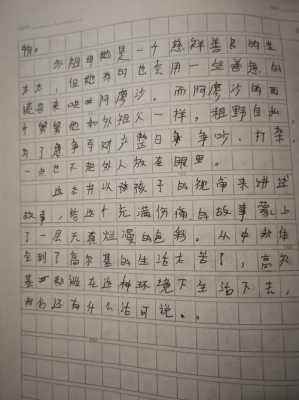 物。
外祖母她是一个慈祥善良的主
方方,但她有时也会用一些善意的
谎言来哄骗阿廖沙。而阿廖沙的两
个舅舅他和外祖父一样,粗野自私
为了争夺财产整日争吵、打架,
一点也不把外人放在眼里。
这本书以孩子的视角来讲述
故事,给这个充满伤痛的故事蒙上
了一层天真烂漫的色彩。从中我体
会到了高尔基的生活太苦了,高尔
基都能在这种环境下生活下去,
我们还有什么话可说。。